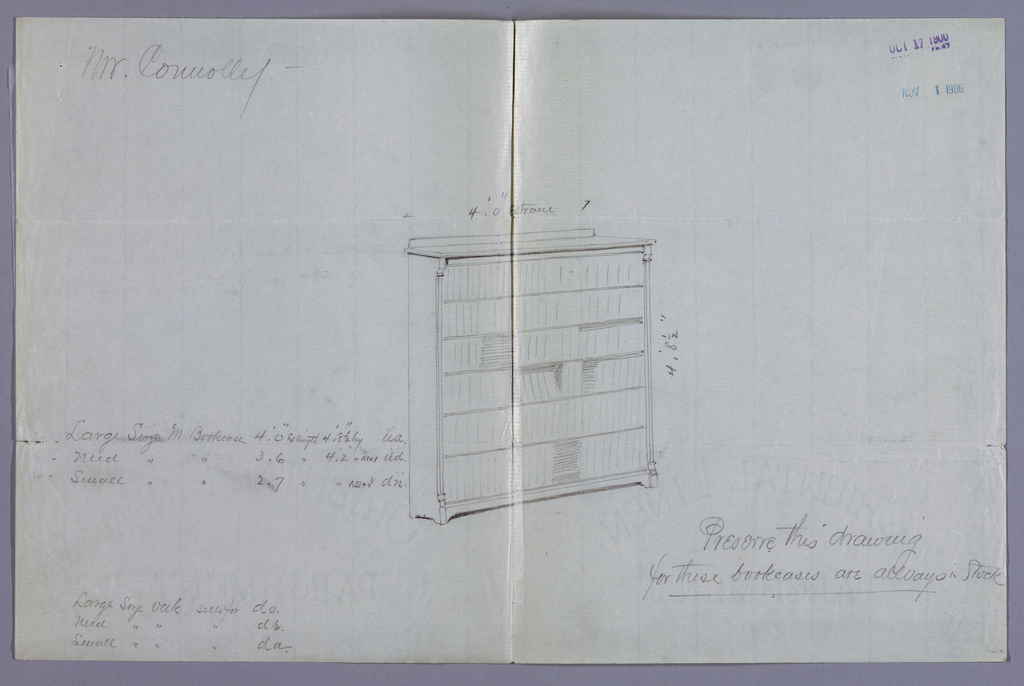 Mr. Connolley. –
OCT 17 1900
NOV 1 1906
4'.0" Extreme
4'.8½"
Large Size M Bookcase 4'.0" 4'.8½ ua.
Med " " 3.6 " 4'.2" ud.
Small " " 2.7 " " dn.
Preserve this drawing
for these bookcases are always in Stock
Large Size Oak do.
Med " " " dr.
Small " " " da.
ORIENTAL LINEN